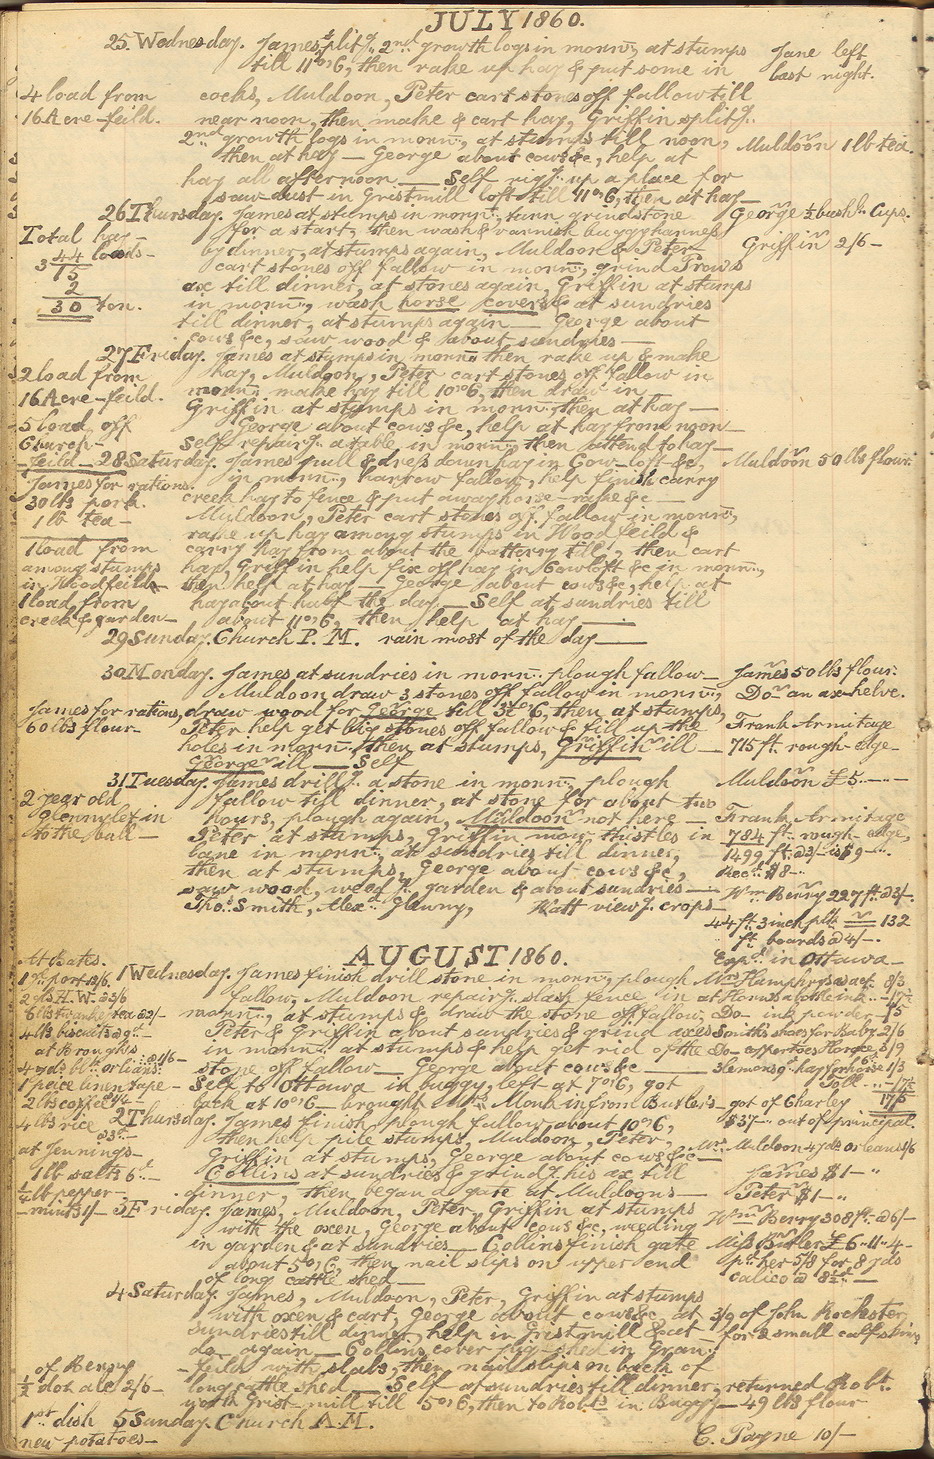 JULY 1860.
25 Wednesday. James split.g 2nd growth logs in morn.g, at stumps
till 11 or 6, then rake up hay & put some in
Jane left
last night.
4 load from
16 Acre-feild.
cocks, Muldoon, Peter cart stones off fallow till
near noon, then make & cart hay, Griffin split.g
2nd growth logs in morn.g, at stumps till noon,
Muldoon 1 lb tea.
then at hay — George about cows &c, help at
hay all afternoon — Self rig.g up a place for
sawdust in Gristmill loft till 11 or 6, then at hay—
26 Thursday. James at stumps in morn.g, turn grindstone
George ½ bush.l Cups.
for a start, then wash & varnish buggy harness
Griffin 2/6 —
Total hay —
44 loads —
3
15
2
30 ton.
by dinner, at stumps again, Muldoon & Peter
cart stones off fallow in morn.g, grind Prow's
ax till dinner, at stones again, Griffin at stumps
in morn.g, wash horse covers & at sundries
till dinner, at stumps again — George about
cows &c, saw wood & about sundries —
27 Friday. James at stumps in morn.g then rake up & make
2 load from
16 Acre-feild.
hay, Muldoon, Peter cart stones off fallow in
morn.g make hay till 10 or 6, then draw in,
Griffin at stumps in morn.g, then at hay —
5 load off
Church-
-feild —
George about cows &c, help at hay from noon —
Self repair.g a table in morn.g, then attend to hay —
28 Saturday. James pull & dress down hay in Cow-loft &c,
Muldoon 50 lbs flour.
James for rations.
30 lbs pork.
1 lb tea —
in morn.g, harrow fallow, help finish carry
creek hay to fence & put away horse-rake &c —
Muldoon, Peter cart stones off fallow in morn.g,
rake up hay among stumps in Woodfeild &
1 load from
among stumps
in Woodfeild —
1 load from
creek & garden —
carry hay from about the battery till, then cart
hay, Griffin help fix off hay in Cowloft &c in morn.g,
then help at hay — George about cows &c, help at
hay about half the day — Self at sundries till
about 11 or 6, then help at hay —
29 Sunday. Church P. M. rain most of the day —
30 Monday. James at sundries in morn.g plough fallow —
James 50 lbs flour.
Muldoon draw 3 stones off fallow in morn.g,
Do an ax-helve.
James for rations,
60 lbs flour —
draw wood for George till 3 or 6, then at stumps,
Peter help get big stones off fallow & fill up the
holes in morn.g, then at stumps, Griffin ill —
George ill — Self
Frank Armitage
715 ft. rough-edge —
31 Tuesday. James drill.g a stone in morn.g, plough
Muldoon £5 .. — .. —
2 year old
Glennylet in
to the bull —
fallow till dinner, at stone for about two
hours, plough again, Muldoon not here —
Peter at stumps, Griffin mow thistles in
lane in morn.g, at sundries till dinner,
then at stumps, George about cows &c,
saw wood, weed.g garden & about sundries —
Tho.s Smith, Alex.d Glenny, Watt view.g crops —
Frank Armitage
784 ft. rough-edge,
1499 ft. @ 3/- is $9 — ..
Rec.d $8 —
Wm Berry 227 ft @ 3/-
44 ft. 3 inch plk = 132
ft. boards @ 4/-.
Exp.s in Ottawa —
AUGUST 1860.
At Bates.
1 g.n port 12/6.
2 gls H. W. @ 3/6
6 lbs Twankey tea @ 2/-
4 lbs biscuits @ 9d —
at Broughs
4 yds bl. orleans @ 1/6 —
1 peice linen tape —
2 lbs coffee @ 1/4
4 lbs rice @ 3d —
at Jennings —
1 lb salts 6d —
¼ lb pepper —
— mints 1/-
1 Wednesday. James finish drill stone in morn.g, plough
fallow, Muldoon repair.g slash fence in
morn.g, at stumps & draw the stone off fallow,
Peter & Griffin about sundries & grind axes
in morn.g at stumps & help get rid of the
stone off fallow — George about cows &c —
Self to Ottawa in buggy, left at 7 or 6, got
back at 10 or 6 — brought Mrs Monk in from Butler's —
Mrs Humphrys' acct 8/3
at Henrys a bottle ink .. — 17½
Do ink powder — 7½
Smith's shoes for Baby 2/6
Do copper toes Horace 3/9
Clemons 9d hay for horse 6d 1/3
Toll .. — 7½
17/5
got of Charley
$37 — out of principal.
2 Thursday. James finish plough fallow about 10 or 6,
then help pile stumps, Muldoon, Peter,
Griffin at stumps, George about cows &c —
Mr. Muldoon 4 yds orleans 1/6
Collins at sundries & grind.g his ax till
James $1 — ..
dinner, then began a gate at Muldoons —
Peter $1 — ..
3 Friday. James, Muldoon, Peter, Griffin at stumps
with the oxen, George about cows &c, weeding
in garden & at sundries — Collins finish gate
about 5 or 6, then nail slips on upper end
of long cattle shed —
Wm Berry 308 ft @ 6/-
Miss Butler £6 .. 11 .. 4 —
p.d her 5/8 for 8 yds
calico @ 8½d —
4 Saturday. James, Muldoon, Peter, Griffin at stumps
with oxen & cart, George about cows &c, at
sundries till dinner, help in Gristmill &c at
do again — Collins cover pig-shed in Gran.y
-feild with slabs, then nail slips on back of
long cattle shed — Self at sundries till dinner, returned Robt.
work Grist-mill till 5 or 6, then to Robt.s in Buggy — 49 lbs flour
3/9 of John Rochester
for 2 small calfskins
of Berry
½ doz ale 2/6 —
1st dish
new potatoes —
5 Sunday. Church A. M.
C. Payne 10/-